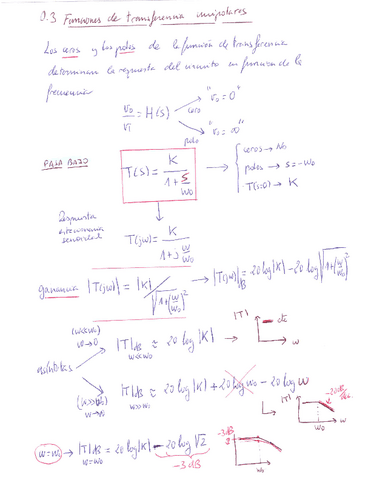 0.3 Funciones de transferencia unipolares
Los ceros y los polos de la función de transferencia
determinan la respuesta del circuito en función de la
frecuencia
Vo/Vi = H(s)
cero "Vo = 0"
polo "Vo = ∞"
PASO BAJO
T(s) = K / (1 + s/wo)
ceros → No
polos → s = -wo
T(s=0) → K
Respuesta
estacionaria
senoidal
T(jw) = K / (1 + j w/wo)
ganancia |T(jw)| = |K| / √(1 + (w/wo)²) → |T(jw)|dB = 20 log|K| - 20 log √(1 + (w/wo)²)
asíntotas
(w<<wo)
w→0
|T|dB w<<wo ≈ 20 log|K| →
|T|
cte
w
(w>>wo)
w→∞
|T|dB w>>wo ≈ 20 log|K| + 20 log wo - 20 log w
|T|
-20dB/
wo
w
w=wo → |T|dB w=wo = 20 log|K| - 20 log √2
-3dB
-3dB
wo